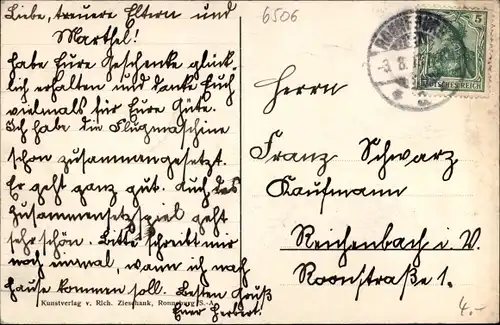 Liebe, treuere Eltern und
Marthel!
habe Eure Geschenke glück-
lich erhalten und danke Euch
vielmals für Eure Güte.
Ich habe die Flugmaschine
schon zusammengesetzt.
Er geht ganz gut. Auch das
Zusammensetzspiel geht
sehr schön. Bitte schreibt mir
noch einmal, wann ich nach
Hause kommen soll. Besten Gruß
Euer Herbert.
Kunstverlag v. Rich. Zieschank, Ronneburg S.-A.
6506
5
DEUTSCHES REICH
Herrn
Franz Schwarz
Kaufmann
Reichenbach i. V.
Roonstraße 1.
4.-